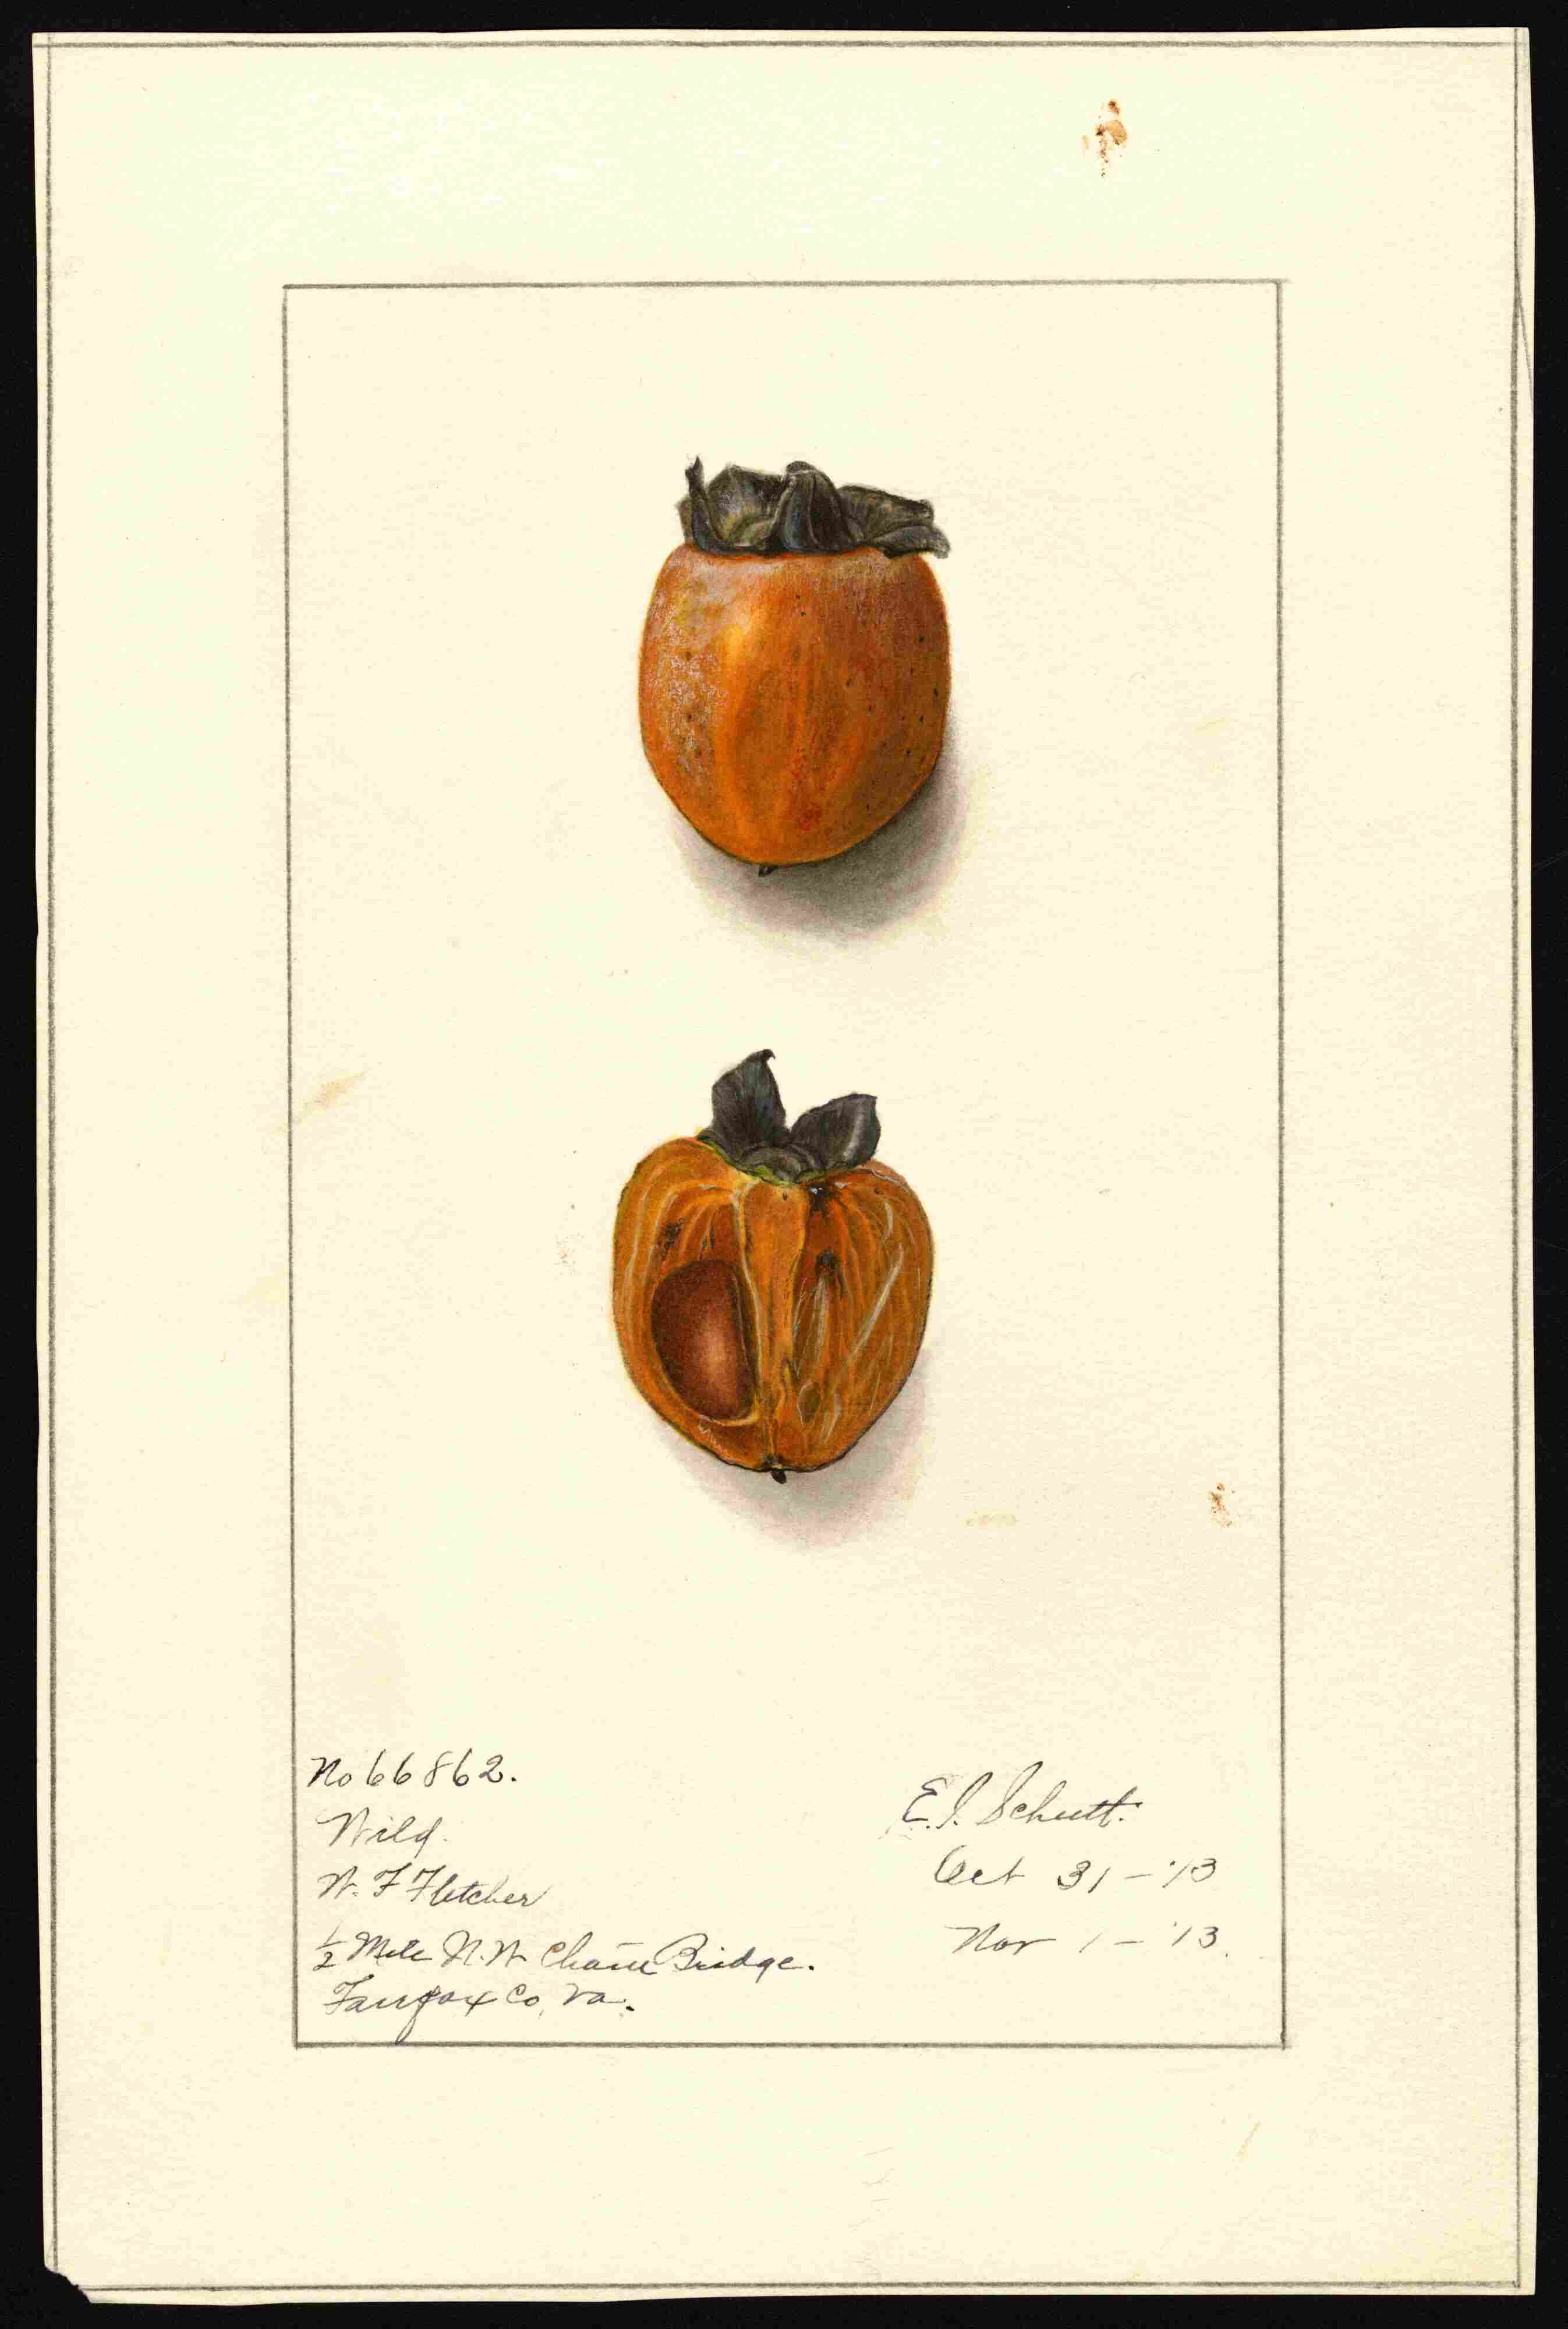 No 66862.
Wild.
W. F Fletcher
½ Mile N.W Chain Bridge.
Fairfax Co, Va.
E. I. Schutt.
Oct 31 - '13
Nov 1 - '13.